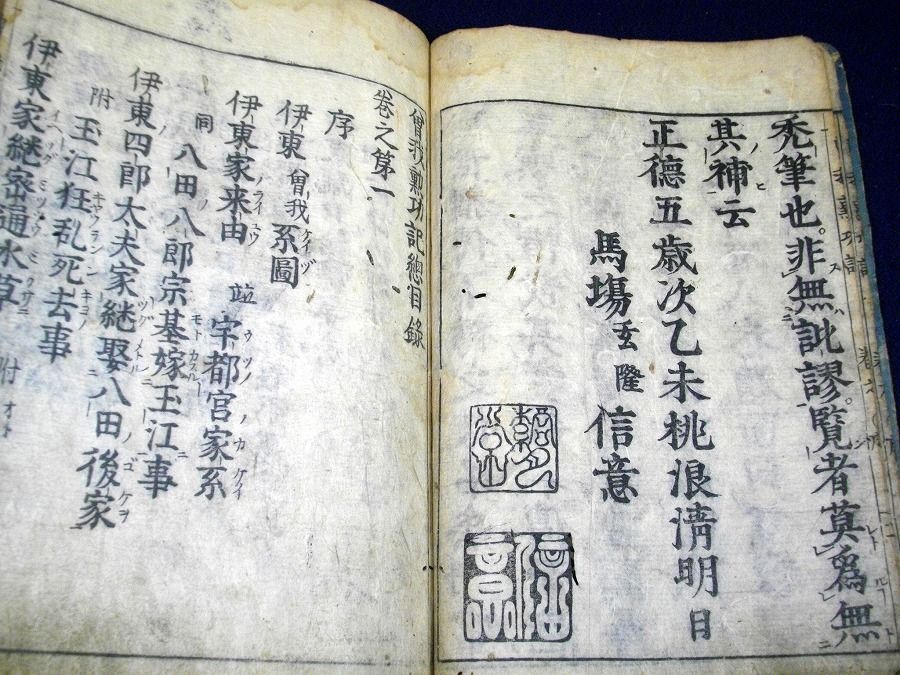 禿筆也。非無訛謬。覧者莫為無
其補云
正德五歳次乙未桃浪淸明日
馬塲玄隆信意
信意
曾我勲功記總目錄
巻之第一
序
伊東曾我系圖
伊東家来由並宇都宮家系
同八田八郎宗基嫁玉江事
伊東四郎太夫家継娶八田後家
附玉江狂乱死去事
伊東家継密通水草附